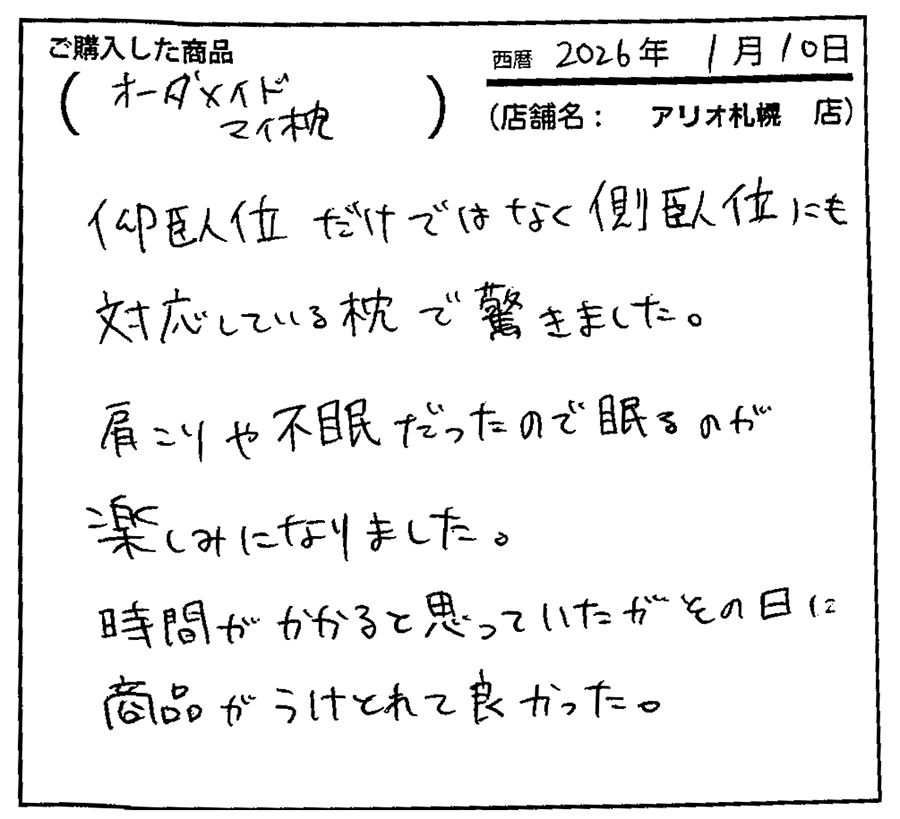 ご購入した商品
西暦 2026年 1月10日
(オーダメイド
マイ枕)
(店舗名: アリオ札幌 店)
仰臥位だけではなく側臥位にも
対応している枕で驚きました。
肩こりや不眠だったので眠るのが
楽しみになりました。
時間がかかると思っていたがその日に
商品がうけとれて良かった。